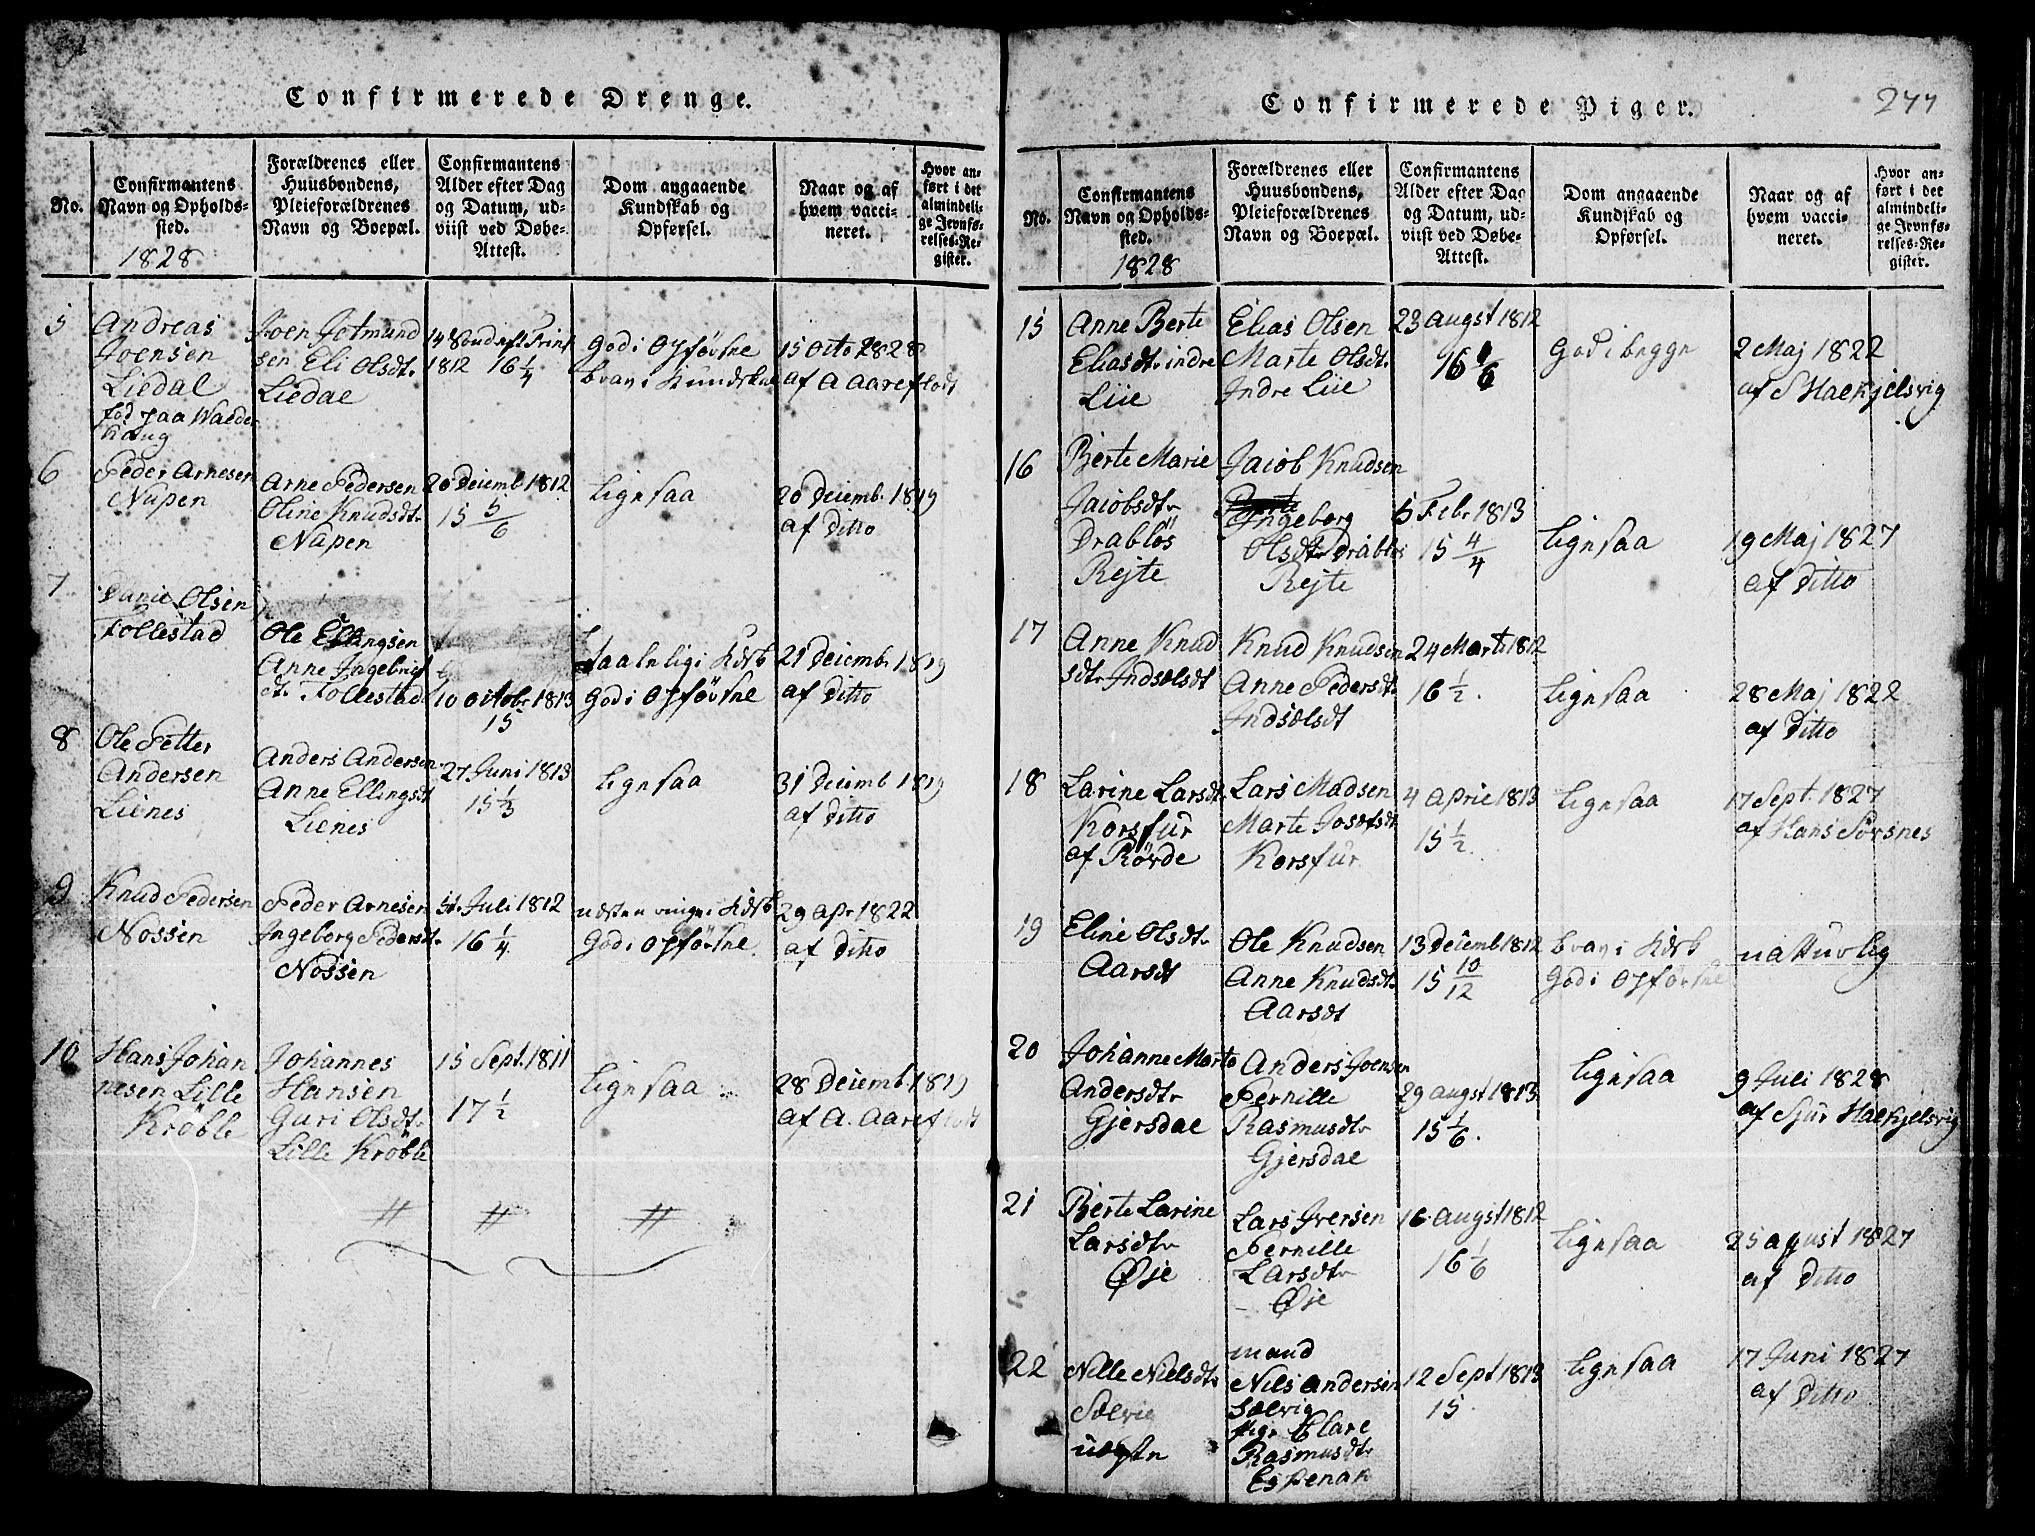 Confirmerede Drenge.
No.
Confirmantens
Navn og Opholds-
sted.
1828
Forældrenes eller
Huusbondens,
Pleieforældrenes
Navn og Boepæl.
Confirmantens
Alder efter Dag
og Datum, ud-
viist ved Døbe-
Attest.
Dom angaaende
Kundskab og
Opførsel.
Naar og af
hvem vacci-
neret.
Hvor an-
ført i det
almindeli-
ge Jevnfø-
relses-Re-
gister.
5
Andreas
Joensen
Liedal
fød paa Walde
haug
Joen Jetmund
sen Eli Olsdtr
Liedal
14 Sönd eft Trinit
1812 16 1/4
god i Opförsne
brav i Kundskab
15 Octo 1828
af A Aareflodt
6
Peder Arnesen
Nupen
Arne Pedersen
Oline Knudsdtr
Nupen
20 Decemb 1812
15 5/6
ligesaa
20 Decemb. 1819
af Ditto
7
Daniel Olsen
Follestad
Ole Ellingsen
Anne Ingebrigt
dtr Follestad
10 Octobr 1813
15
taalelig i Kdsk
god i Opförsne
21 Decemb 1819
af Ditto
8
Ole Petter
Andersen
Lienes
Anders Andersen
Anne Ellingsdt
Lienes
27 Juni 1813
15 1/3
ligesaa
31 Decemb 1819
af Ditto
9
Knud Pedersen
Nossen
Peder Arnesen
Ingeborg Pedersdtr
Nossen
Juli 1812
16 1/4
næsten ringe i Kdsk
god i Opförsne
29 Apr 1822
af Ditto
10
Hans Johan
nesen Lille
Kröble
Johannes
Hansen
Guri Olsdtr
Lille Kröble
15 Sept. 1811
17 1/2
ligesaa
28 Decemb. 1819
af A. Aareflodt
# # #
Confirmerede Piger.
277
No.
Confirmantens
Navn og Opholds-
sted.
1828
Forældrenes eller
Huusbondens,
Pleieforældrenes
Navn og Boepæl.
Confirmantens
Alder efter Dag
og Datum, ud-
viist ved Døbe-
Attest.
Dom angaaende
Kundskab og
Opførsel.
Naar og af
hvem vacci-
neret.
Hvor an-
ført i det
almindeli-
ge Jevnfø-
relses-Re-
gister.
15
Anne Berte
Eliasdtr indre
Liie
Elias Olsen
Marte Olsdtr
Indre Liie
23 Augst 1812
16 1/6
god i begge
2 Maj 1822
af S Haekjelsvig
16
Berte Marie
Jacobsdtr
Drabløs
Rejte
Jacob Knudsen
Ingeborg
Olsdtr Drabløs
Rejte
5 Febr 1813
15 4/4
ligesaa
19 Maj 1827
af Ditto
17
Anne Knud
sdtr Indselsdt
Knud Knudsen
Anne Pedersdtr
Indselsdt
24 Marts 1812
16 1/2.
ligesaa
28 Maj 1822
af Ditto
18
Larine Larsdtr
Korsfur
af Rövde
Lars Madsen
Marte Josefsdtr
Korsfur
4 April 1813
15 1/2
ligesaa
17 Sept. 1827
af Hans Sørsnes
19
Eline Olsdtr
Aarsdt
Ole Knudsen
Anne Knudsdtr
Aarsdt
13 Decemb 1812
15 10/12
brav i Kdsk
god i Opförsne
naturlig
20
Johanne Marte
Andersdtr
Gjersdal
Anders Joensen
Pernille
Rasmusdtr
Gjersdal
29 augst 1813
15 1/6.
ligesaa
9 Juli 1828
af Sjur Haekjelsvig
21
Berte Larine
Larsdtr
Øje
Lars Iversen
Pernille
Larsdtr
Øje
16 Augst 1812
16 1/6
ligesaa
25 agust 1827
af Ditto
22
Nille Nielsdtr
Sælvig
uægte
mand
Nils Andersen
Sælvig
Pige Clare
Rasmusdtr
Espenak
12 Sept 1813
15
ligesaa
17 Juni 1827
af Ditto